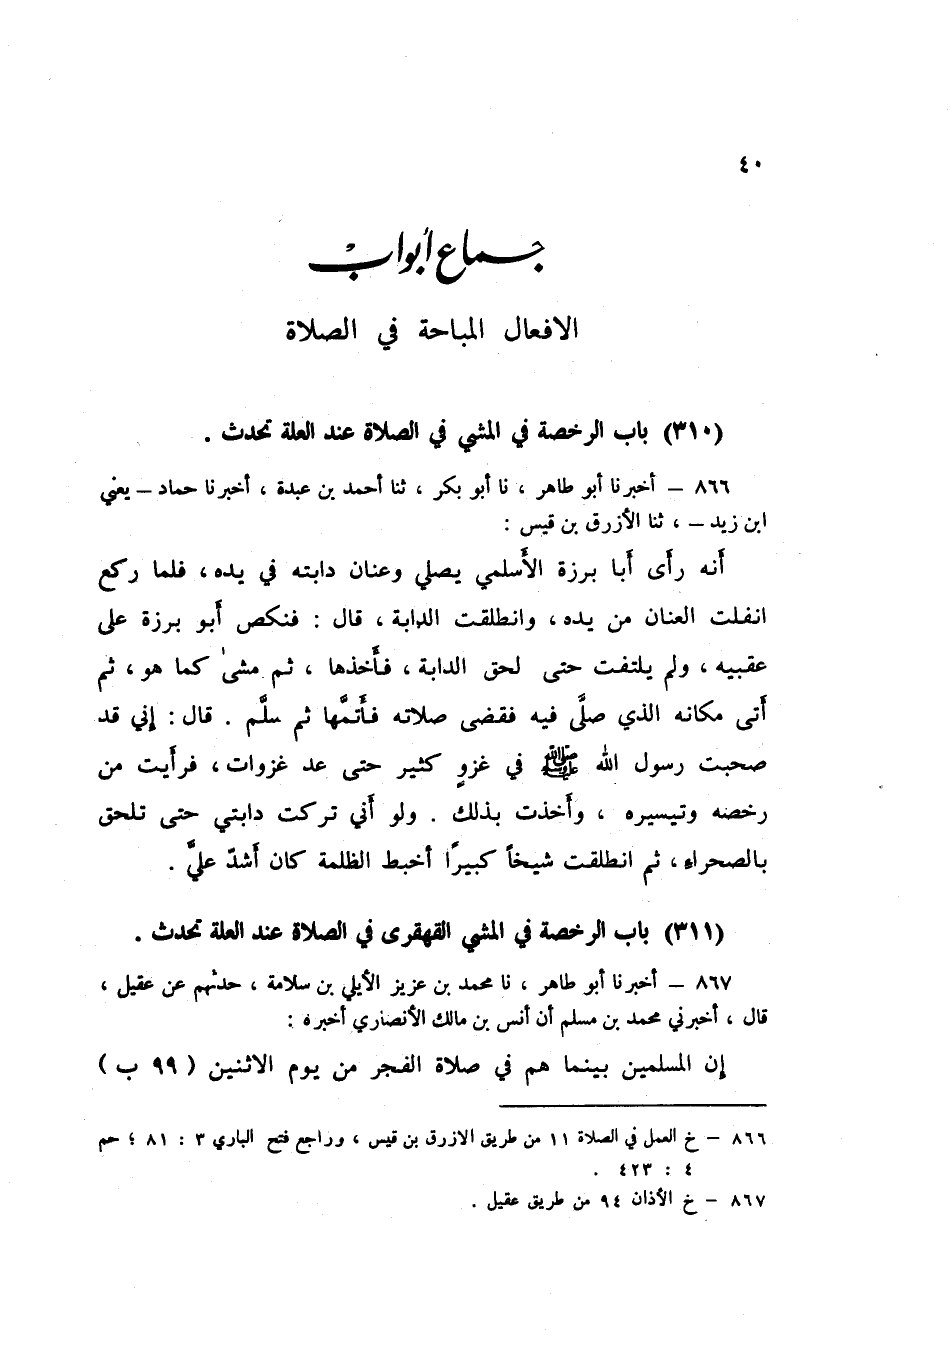 ٤٠
جماع أبواب
الافعال المباحة في الصلاة
(٣١٠) باب الرخصة في المشي في الصلاة عند العلة تحدث .
٨٦٦ – أخبرنا أبو طاهر ، نا أبو بكر ، ثنا أحمد بن عبدة ، أخبرنا حماد – يعني
ابن زيد – ، ثنا الأزرق بن قيس :
أنه رأى أبا برزة الأسلمي يصلي وعنان دابته في يده ، فلما ركع
انفلت العنان من يده ، وانطلقت الدابة ، قال : فنكص أبو برزة على
عقبيه ، ولم يلتفت حتى لحق الدابة ، فأخذها ، ثم مشىٰ كما هو ، ثم
أتى مكانه الذي صلَّى فيه فقضى صلاته فأتمَّها ثم سلَّم . قال : إني قد
صحبت رسول الله ﷺ في غزوٍ كثير حتى عد غزوات ، فرأيت من
رخصه وتيسيره ، وأخذت بذلك . ولو أني تركت دابتي حتى تلحق
بالصحراء ، ثم انطلقت شيخاً كبيرًا أخبط الظلمة كان أشدّ عليَّ .
(٣١١) باب الرخصة في المشي القهقرى في الصلاة عند العلة تحدث .
٨٦٧ – أخبرنا أبو طاهر ، نا محمد بن عزيز الأيلي بن سلامة ، حدثهم عن عقيل ،
قال ، أخبرني محمد بن مسلم أن أنس بن مالك الأنصاري أخبره :
إن المسلمين بينما هم في صلاة الفجر من يوم الاثنين ( ٩٩ ب )
٨٦٦ – خ العمل في الصلاة ١١ من طريق الازرق بن قيس ، وراجع فتح الباري ٣ : ٨١ ؛ حم
٤ : ٤٢٣ .
٨٦٧ – خ الأذان ٩٤ من طريق عقيل .